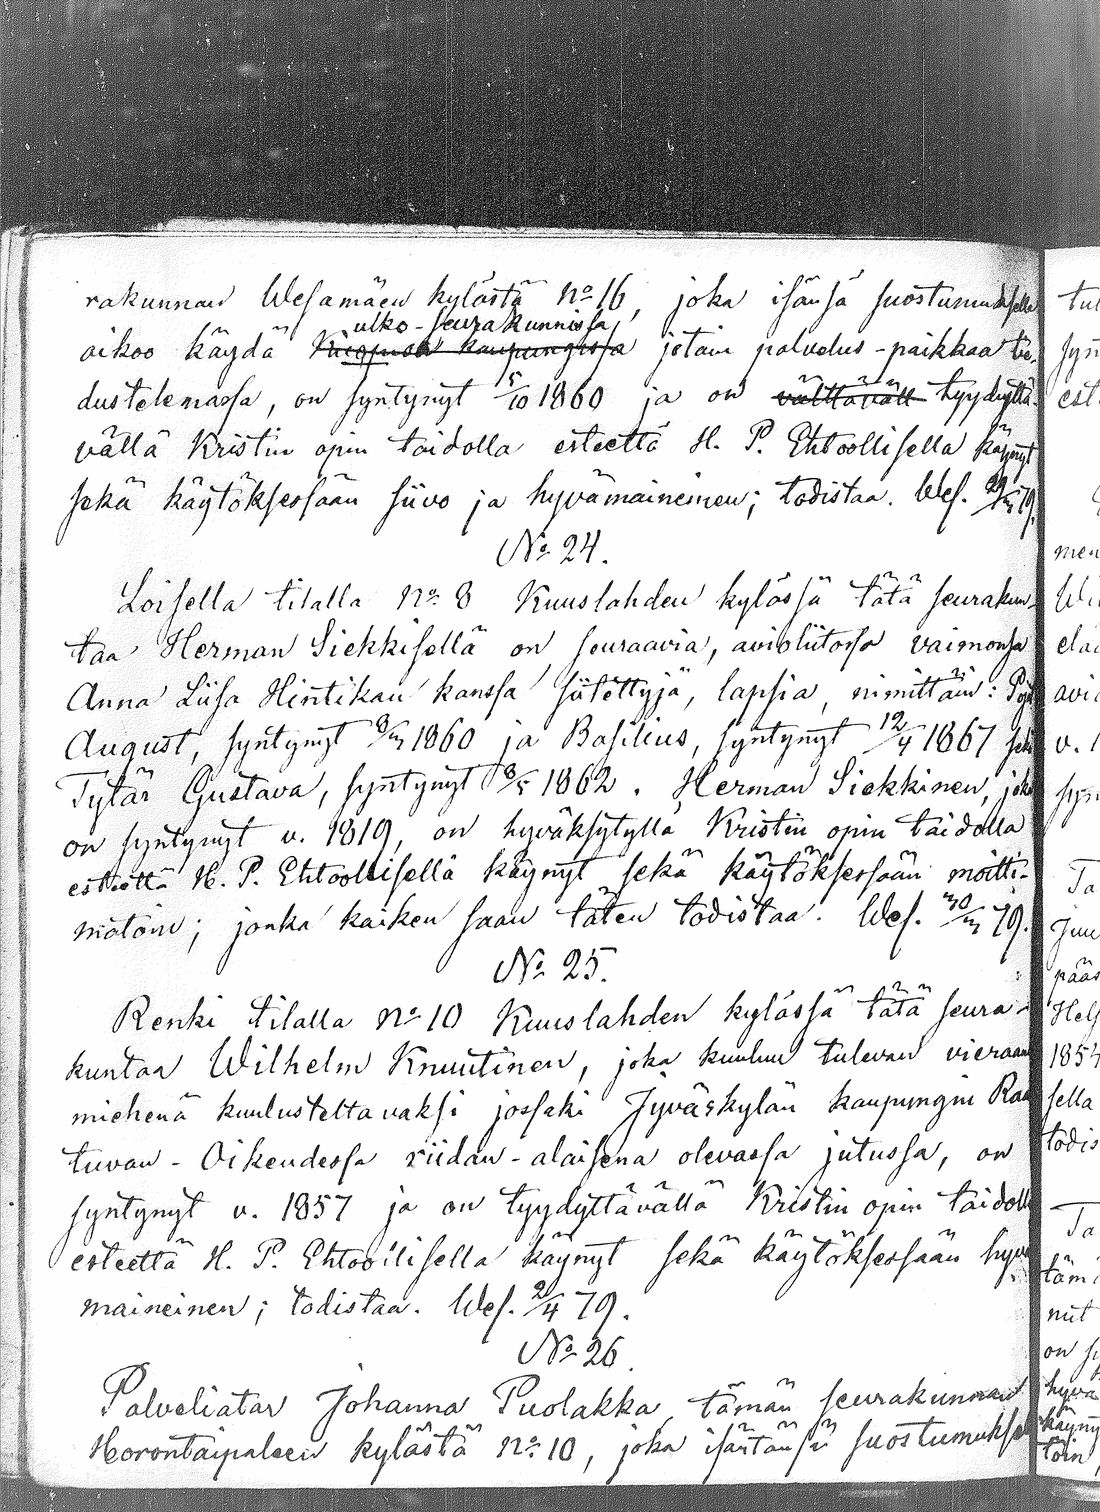 rakunnan Wesamäen kylästä No 16, joka isänsä suostumuksella
ulko-seurakunnissa
aikoo käydä Kuopion kaupungissa jotain palvelus-paikkaa tie-
dustelemassa, on syntynyt 15/10 1860 ja on välttävällä tyydyttä-
vällä Kristin opin taidolla esteettä H. P. Ehtoollisella käynyt
sekä käytöksessään siivo ja hyvämaineinen; todistaa. Wes. 29/3 79.
No 24.
Loisella tilalla No 8 Kuuslahden kylässä tätä seurakun-
taa Herman Siekkisellä on seuraavia, avioliitossa vaimonsa
Anna Liisa Hintikan kanssa siitettyjä, lapsia, nimittäin: Pojat
August, syntynyt 8/3 1860 ja Basilius, syntynyt 12/4 1867 sekä
Tytär Gustava, syntynyt 8/5 1862. Herman Siekkinen, joka
on syntynyt v. 1819, on hyväksytyllä Kristin opin taidolla
esteettä H. P. Ehtoollisella käynyt sekä käytöksessään moitti-
matoin; jonka kaiken saan täten todistaa. Wes. 30/3 79.
No 25.
Renki tilalla No 10 Kuuslahden kylässä tätä seura-
kuntaa Wilhelm Knuutinen, joka kuuluu tulevan vieraan
miehenä kuulusteltavaksi jossaki Jyväskylän kaupungin Raas
tuvan-Oikeudessa riidan-alaisena olevassa jutussa, on
syntynyt v. 1857 ja on tyydyttävällä Kristin opin taidolla
esteettä H. P. Ehtoollisella käynyt sekä käytöksessään hyvä
maineinen; todistaa. Wes. 2/4 79.
No 26.
Palveliatar Johanna Puolakka, tämän seurakunnan
Horontaipaleen kylästä No 10, joka isäntänsä suostumuksella